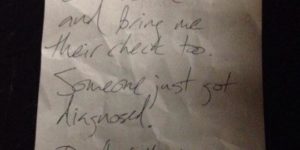 and bring me
their check too.
Someone just got
diagnosed.